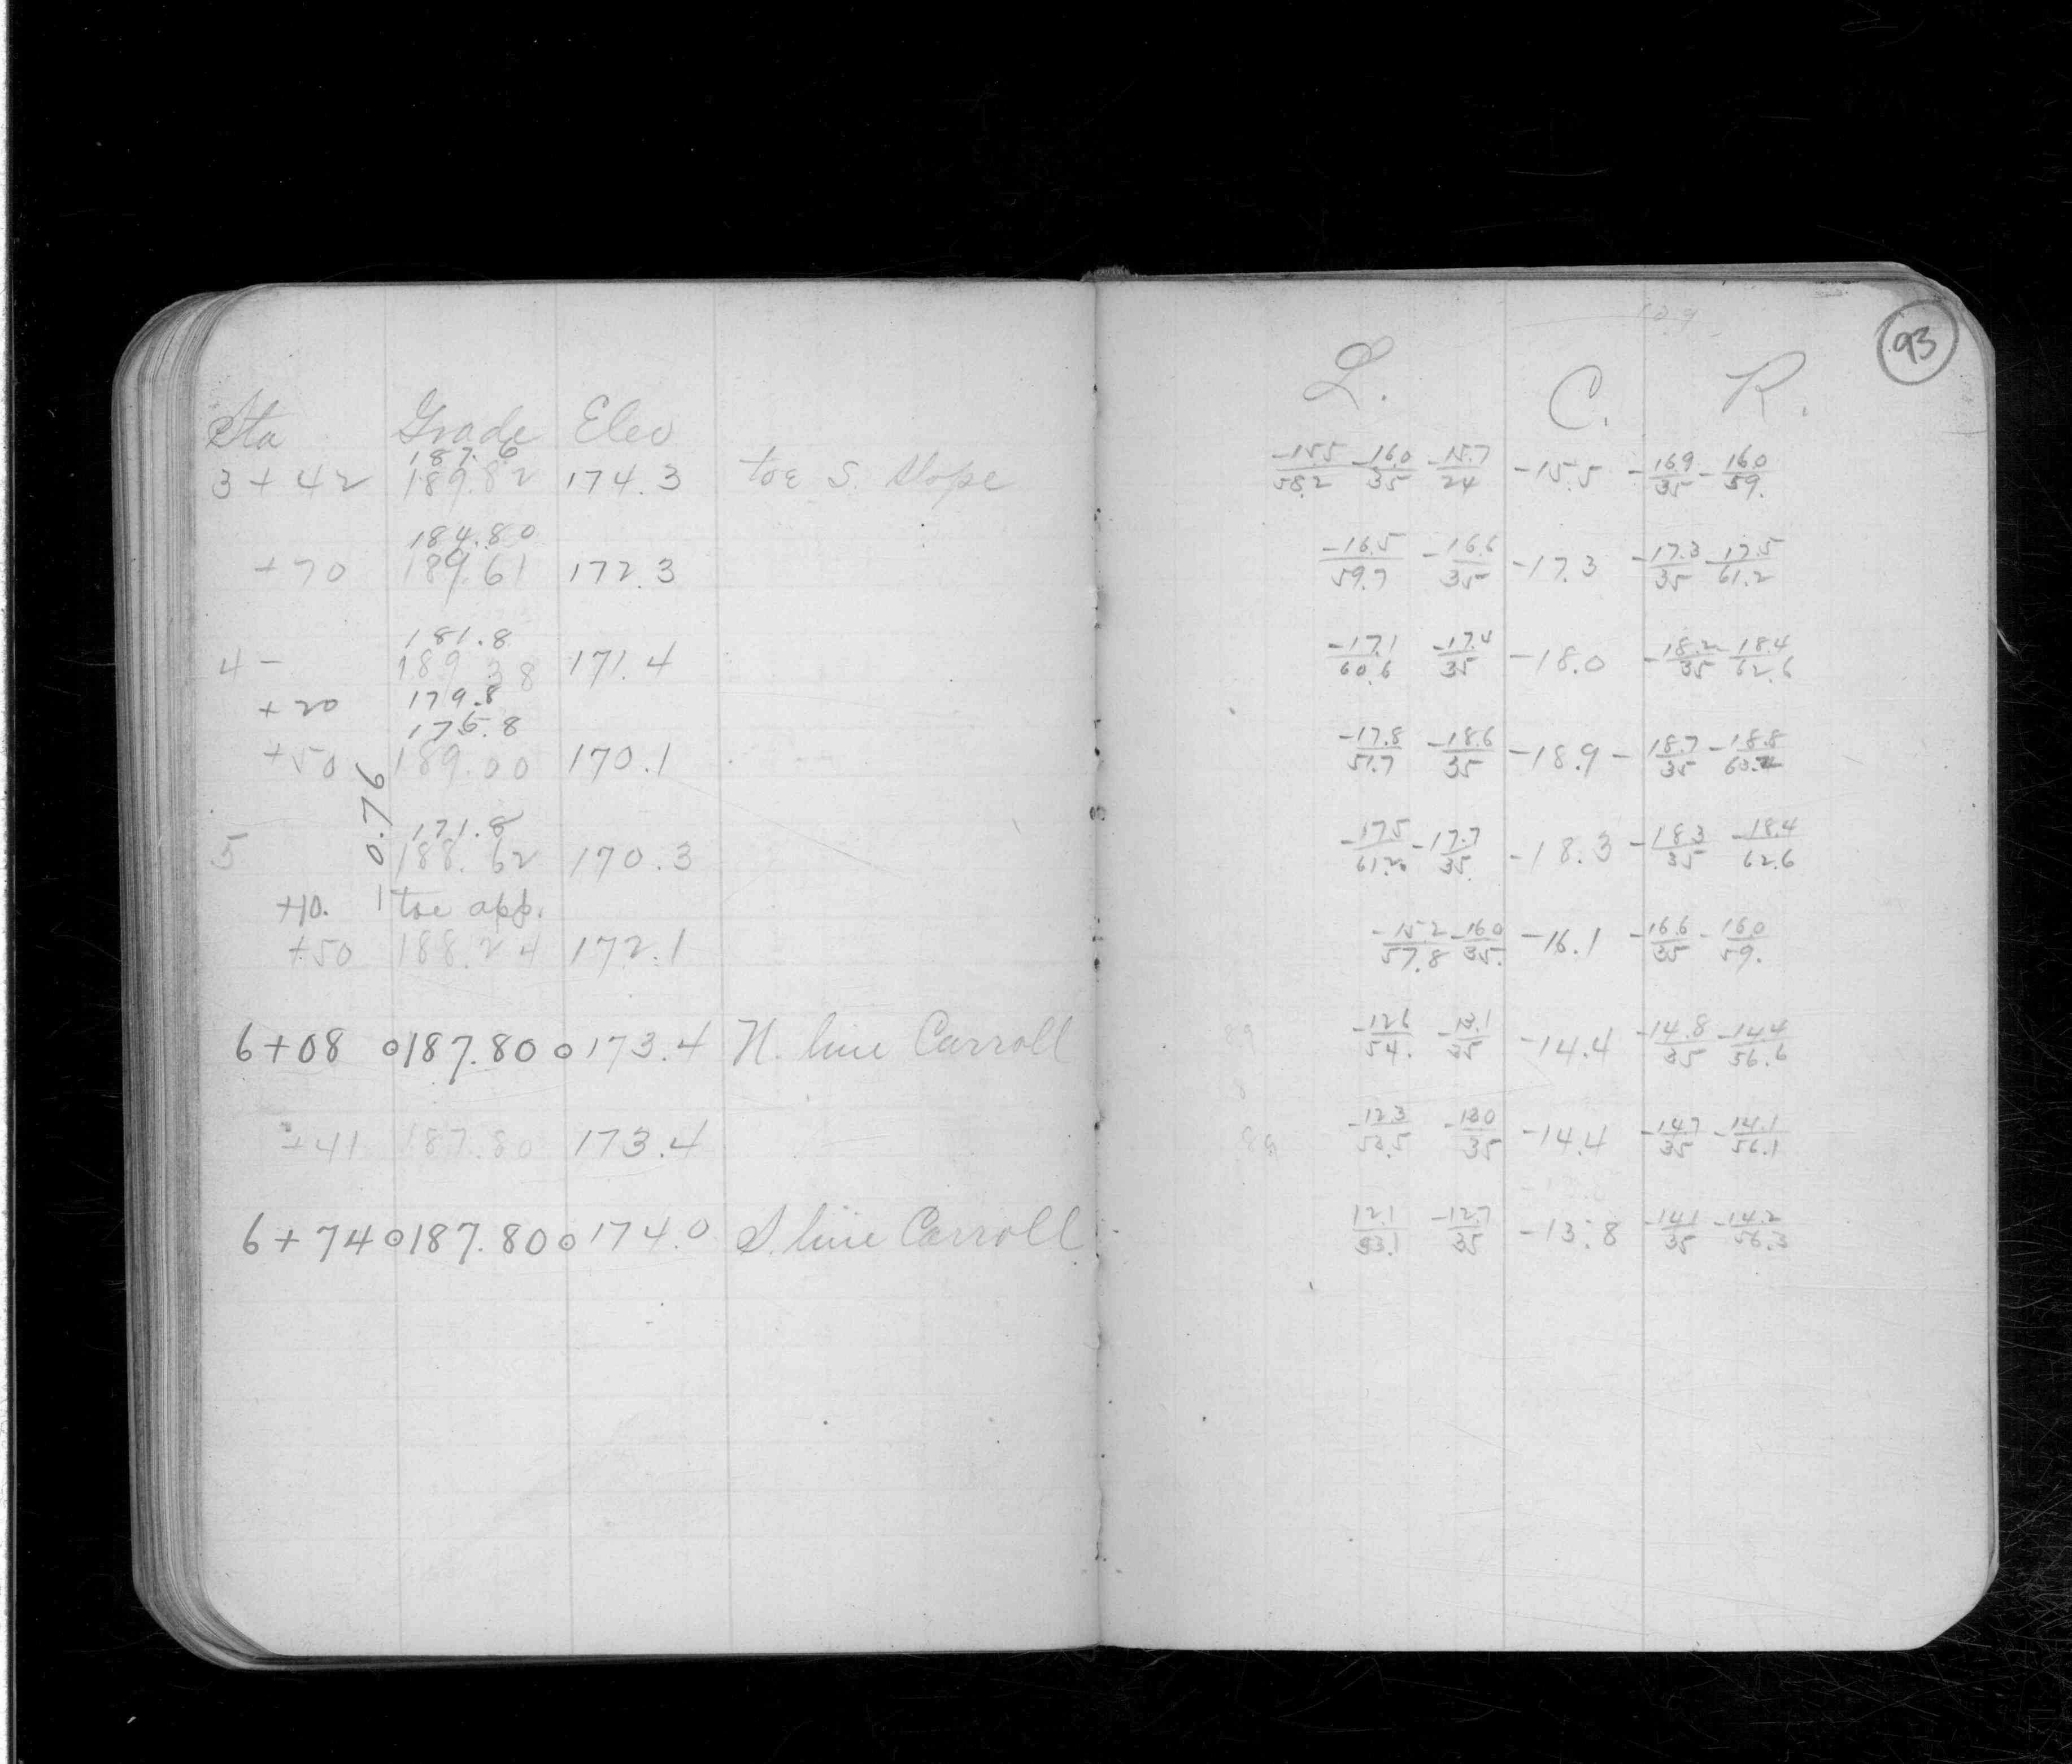 93
Sta Grade Elev L. C. R.
187.6
3+42 189.82 174.3 toe S. Slope -15.5/58.2 -16.0/35 -15.7/24 -15.5 -16.9/35 -16.0/59.
184.80
+70 189.61 172.3 -16.5/59.7 -16.6/35 -17.3 -17.3/35 -17.5/61.2
181.8
4- 189.38 171.4 -17.1/60.6 -17.4/35 -18.0 -18.2/35 -18.4/62.6
+20 179.8
176.8
+50 189.00 170.1 -17.8/51.7 -18.6/35 -18.9 -18.7/35 -18.8
0.76
171.8
5 188.62 170.3 -17.5/61.2 -17.7/35. -18.3 -18.3/35 -18.4/62.6
+10. toe app.
+50 188.24 172.1 -15.2/57.8 -16.0/35. -16.1 -16.6/35 -16.0/59.
6+08 187.80 173.4 N. line Carroll -12.6/54. -13.1/35 -14.4 -14.8/35 -14.4/56.6
+41 187.80 173.4 -12.3/53.5 -13.0/35 -14.4 -14.7/35 -14.1/56.1
6+74 187.80 174.0 S. line Carroll 12.1/53.1 -12.7/35 -13.8 -14.1/35 -14.2/56.3